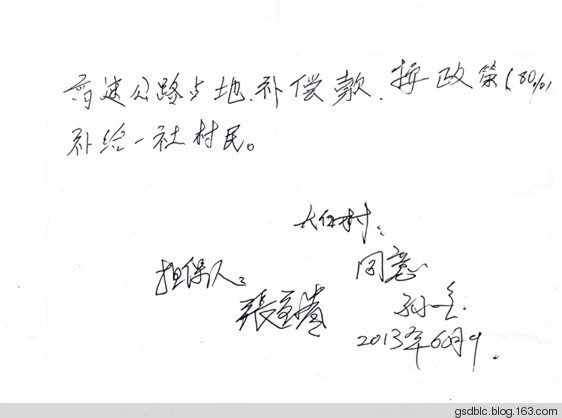 高速公路占地补偿款.按政策(80%)
补给一社村民。
大伍村:
担保人: 同意
2013年6月9.
gsdblc.blog.163.com